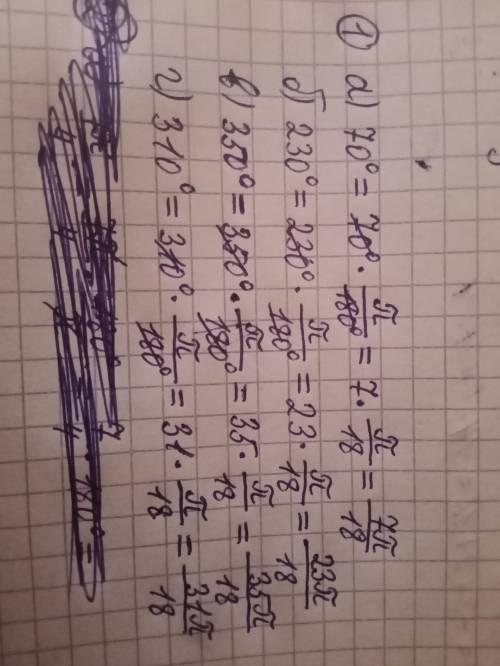 ① а) 70° = 70° · π/180° = 7 · π/18 = 7π/18
б) 230° = 230° · π/180° = 23 · π/18 = 23π/18
в) 350° = 350° · π/180° = 35 · π/18 = 35π/18
г) 310° = 310° · π/180° = 31 · π/18 = 31π/18